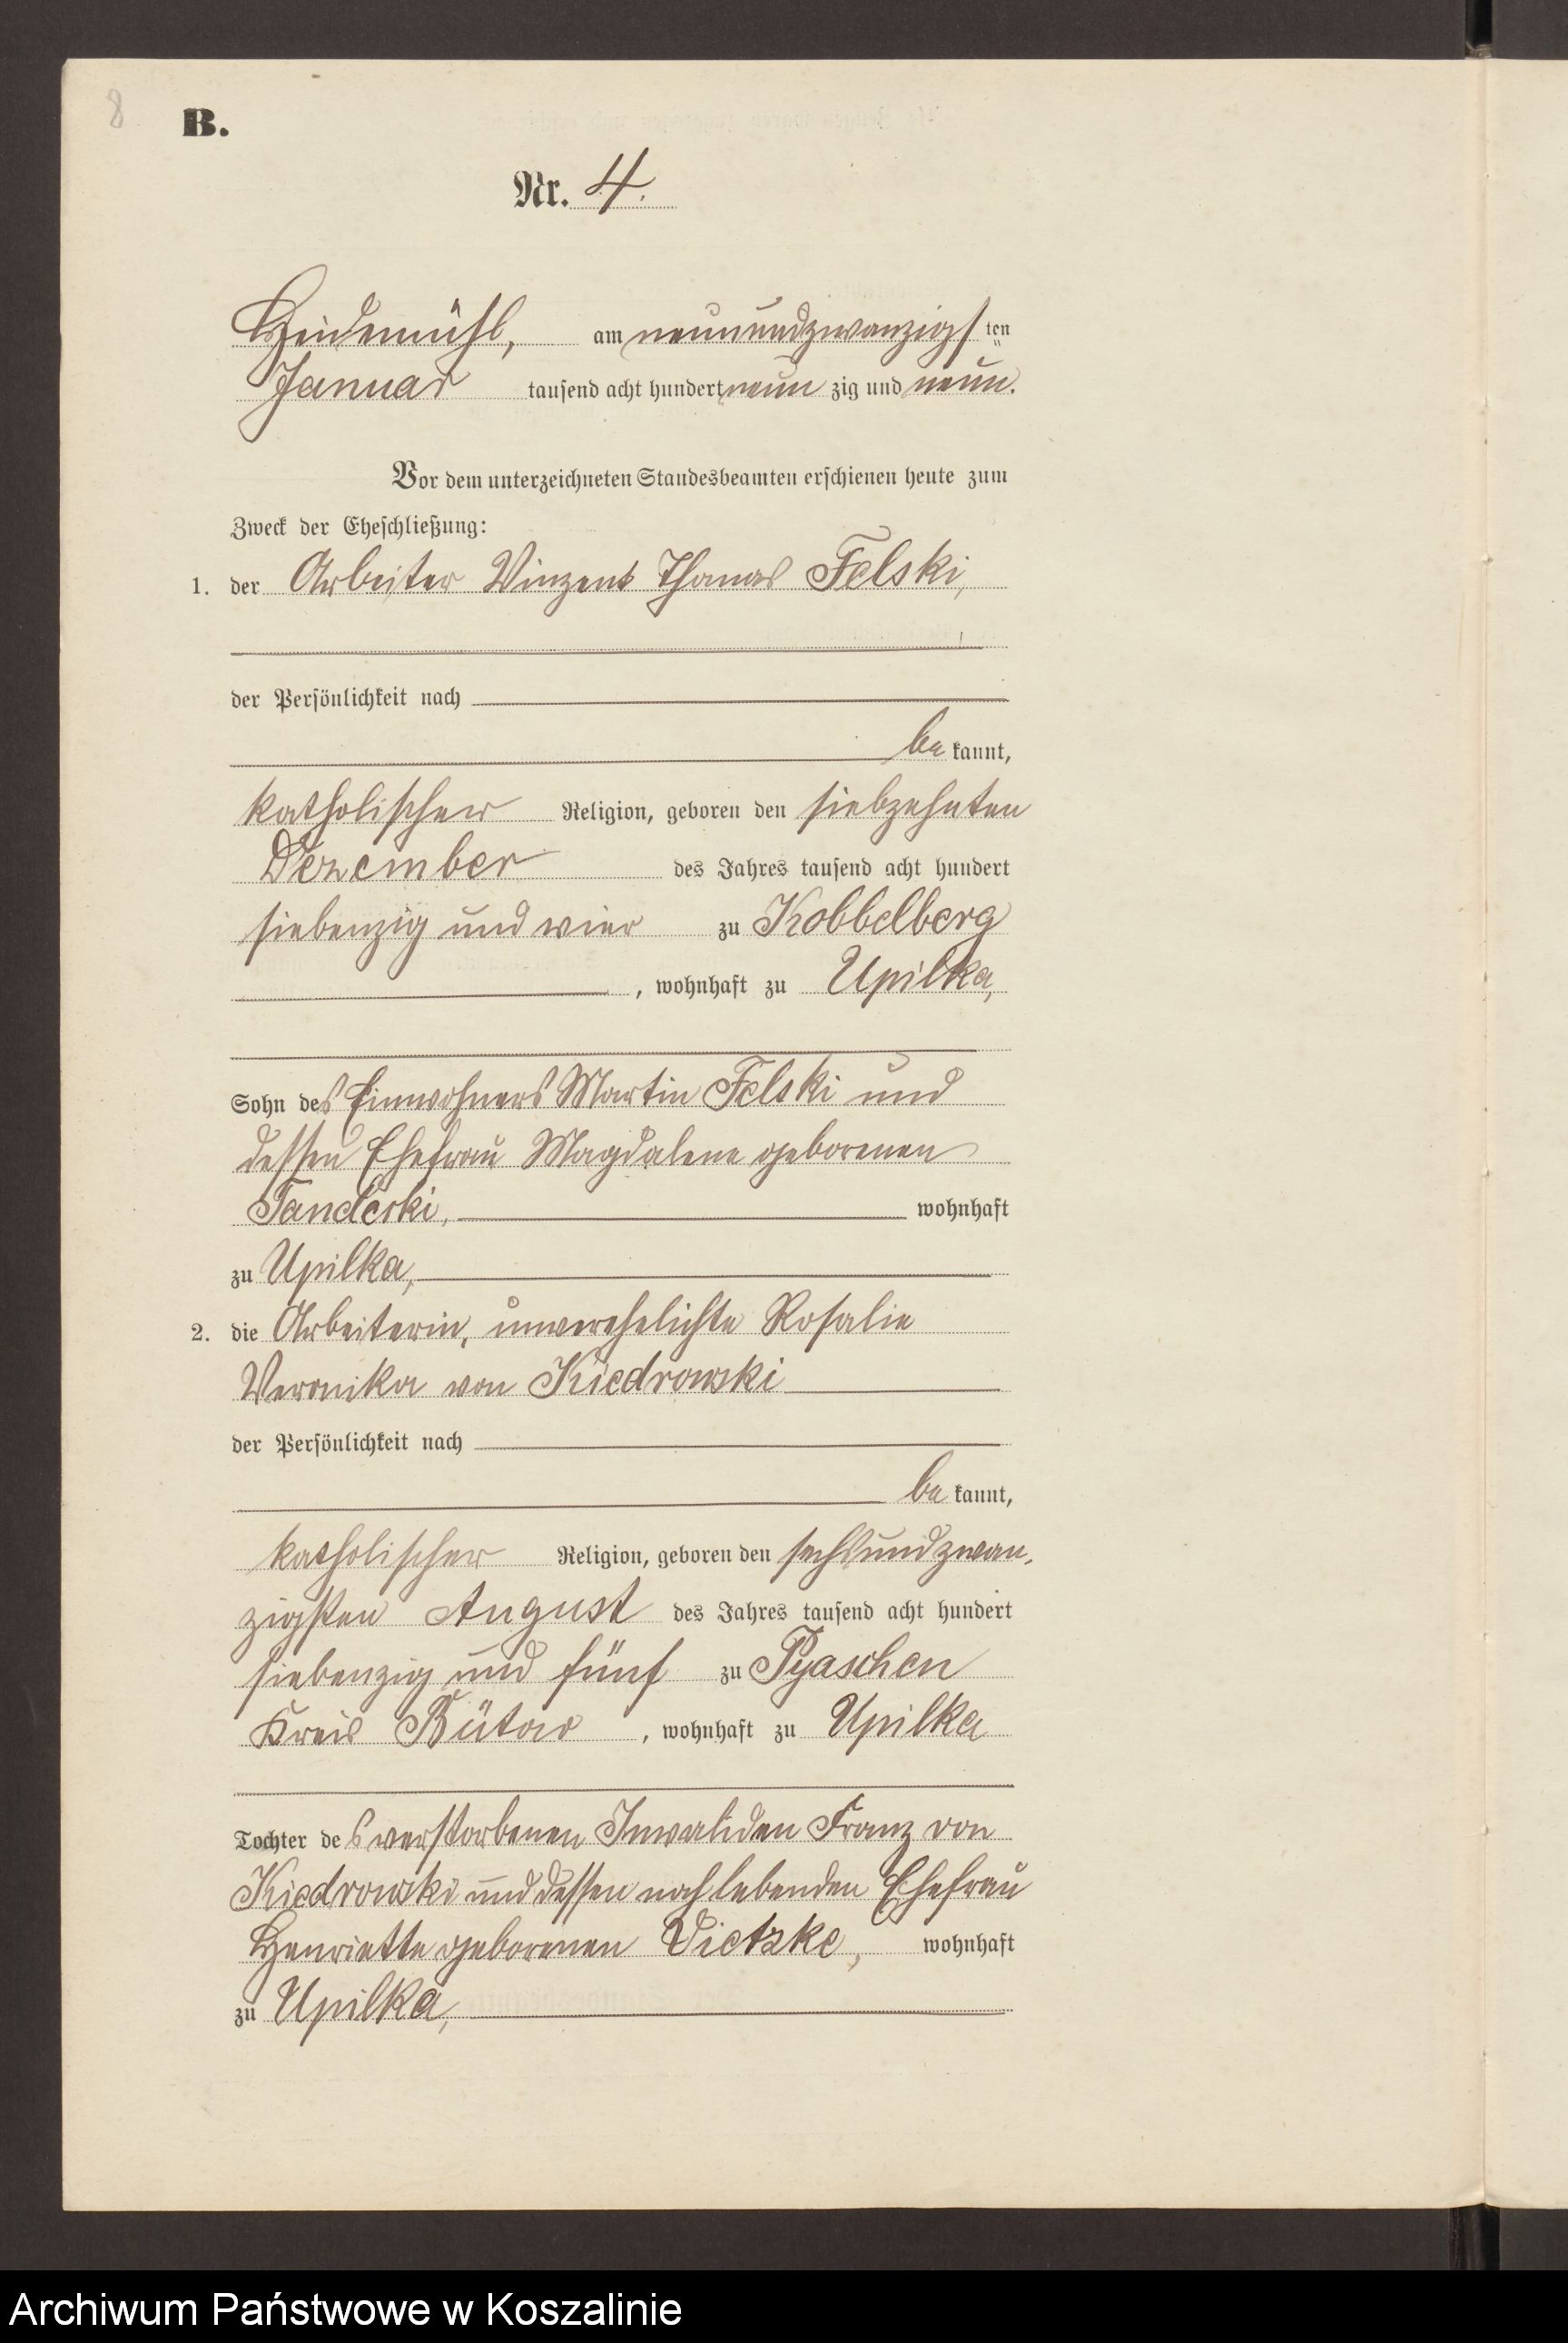 8
B.
Nr. 4.
Heidemühl, am neunundzwanzigsten
Januar tausend acht hundert neun zig und neun.
Vor dem unterzeichneten Standesbeamten erschienen heute zum
Zweck der Eheschließung:
1. der Arbeiter Vinzent Thomas Felski,
der Persönlichkeit nach
be kannt,
katholischer Religion, geboren den siebzehnten
Dezember des Jahres tausend acht hundert
siebenzig und vier zu Kobbelberg
, wohnhaft zu Upilka,
Sohn des Einwohners Martin Felski und
dessen Ehefrau Magdalene geborenen
wohnhaft
zu Upilka,
2. die Arbeiterin, unverehelichte Rosalie
Veronika von Kiedrowski
der Persönlichkeit nach
be kannt,
katholischer Religion, geboren den sechsundzwan-
zigsten August des Jahres tausend acht hundert
siebenzig und fünf zu Pyaschen
Kreis Bütow, wohnhaft zu Upilka
Tochter des verstorbenen Invaliden Franz von
Kiedrowski und dessen noch lebenden Ehefrau
Henriette geborenen Vietzke, wohnhaft
zu Upilka,
Archiwum Państwowe w Koszalinie